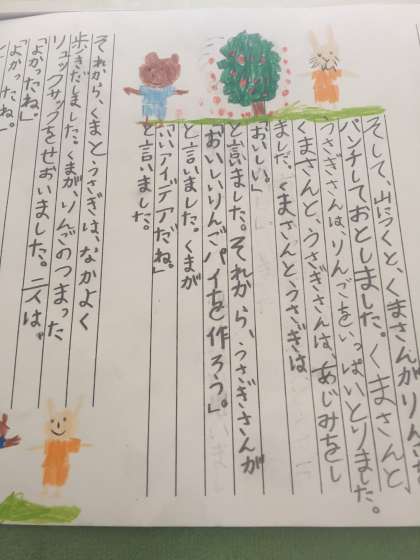 そして、山につくと、くまさんがりんごを
パンチしておとしました。くまさんと、
うさぎさんは、りんごをいっぱいとりました。
くまさんと、うさぎさんは、あじみをし
ました。くまさんとうさぎは、
「おいしい」
と言いました。それから、うさぎさんが
「おいしいりんごパイを作ろう」。
と言いました。くまが
「いいアイデアだね」
と言いました。
それから、くまとうさぎは、なかよく
歩きだしました。くまが、りんごのつまった
リュックサックをせおいました。二人は、
「よかったね」
「よかったね。」